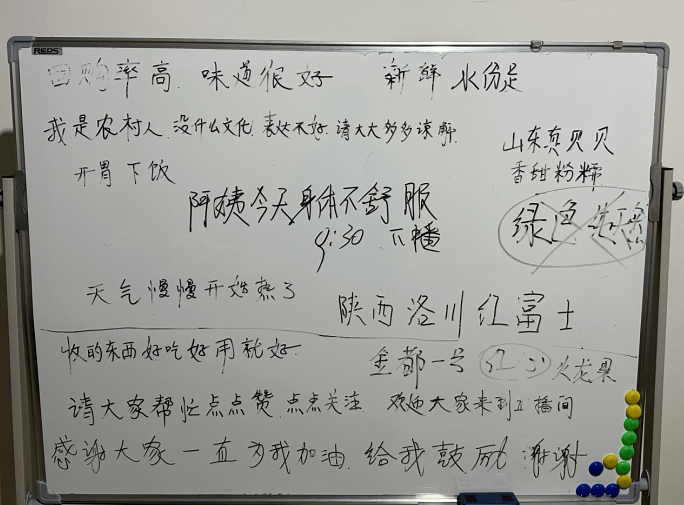 REDS
回购率高 味道很好 新鲜 水份足
我是农村人 没什么文化 表达不好 请大大多多谅解
山东贝贝
开胃 下饭
香甜粉糯
阿姨今天身体不舒服
绿色
9:30 下播
天气慢慢开始热了
陕西洛川红富士
收的东西好吃好用就好
金都一号 红心 火龙果
请大家帮忙点点赞 点点关注 欢迎大家来到直播间
感谢大家一直为我加油 给我鼓励 谢谢